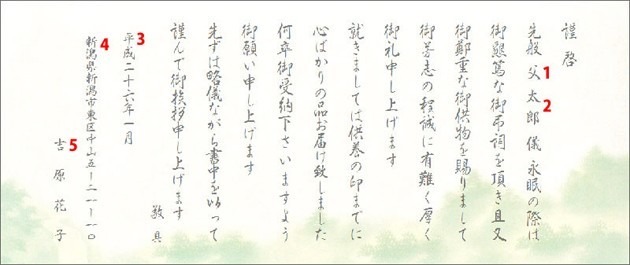 謹啓
先般 父 太郎 儀 永眠の際は
御懇篤な御弔詞を頂き且又
御鄭重な御供物を賜りまして
御芳志の程誠に有難く厚く
御礼申し上げます
就きましては供養の印までに
心ばかりの品お届け致しました
何卒御受納下さいますよう
御願い申し上げます
先ずは略儀ながら書中を以って
謹んで御挨拶申し上げます
敬具
平成二十六年一月
新潟県新潟市東区中山五ー二一ー一〇
吉原花子
1
2
3
4
5